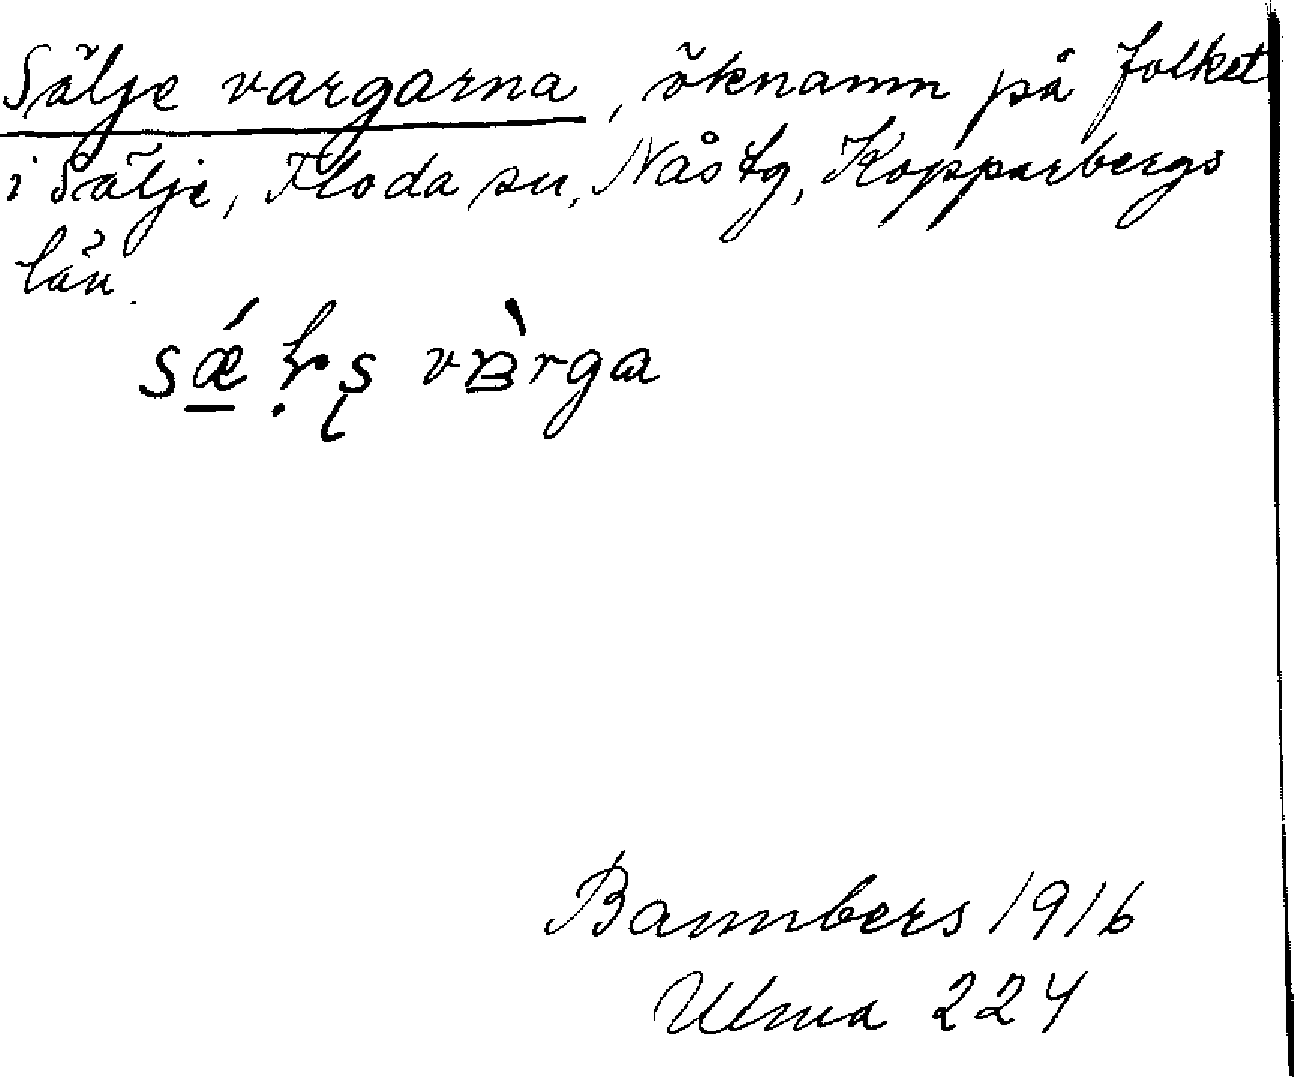 Sälje vargarna, öknamn på folket
i Sälje, Floda sn, Nås tg, Kopparbergs
län.
varga
Bannbers 1916
Ulma 224